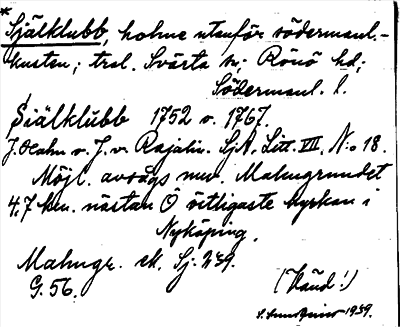 * Själklubb, holme utanför södermanl.-
kusten; trol. Svärta sn; Rönö hd;
Södermanl. l.
Siälklubb 1752 o. 1767.
J. Hahn o. J. v. Rajalin. SjA. Litt. VII, N:o 18.
Möjl. avsågs nuv. Malmgrundet
4,7 km. nästan O östligaste kyrkan i
Nyköping.
Malmgr. ek. Sj: 249.
G. 56.
(Känd!)
1939.